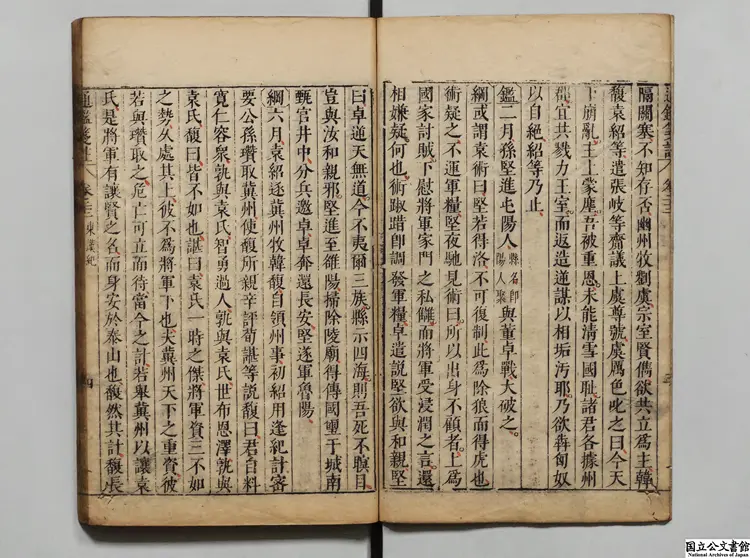 隔關塞不知存否幽州牧劉虞宗室賢儁欲共立爲主韓
馥袁紹等遣張岐等齎議上虞尊號虞厲色叱之曰今天
下崩亂主上蒙塵吾被重恩未能清雪國恥諸君各據州
郡宜共戮力王室而返造逆謀以相垢汚耶乃欲奔匈奴
以自絕紹等乃止
鑑二月孫堅進屯陽人縣名卽陽人聚與董卓戰大破之
綱或謂袁術曰堅若得洛不可復制此爲除狼而得虎也
術疑之不運軍糧堅夜馳見術曰所以出身不顧者上爲
國家討賊下慰將軍家門之私讎而將軍受浸潤之言還
相嫌疑何也術踧踖卽調發軍糧卓遣說堅欲與和親堅
曰卓逆天無道今不夷爾三族縣示四海則吾死不瞑目
豈與汝和親邪堅進至雒陽掃除陵廟得傳國璽于城南
甄官井中分兵邀卓卓奔還長安堅遂軍魯陽
綱六月袁紹逐冀州牧韓馥自領州事初紹用逢紀計審
要公孫瓚取冀州使馥所親辛評荀諶等說馥曰君自料
寬仁容衆孰與袁氏智勇過人孰與袁氏世布恩澤孰與
袁氏馥曰皆不如也諶曰袁氏一時之傑將軍資三不如
之勢久處其上彼不爲將軍下也夫冀州天下之重資彼
若與瓚取之危亡可立而待當今之計若舉冀州以讓袁
氏是將軍有讓賢之名而身安於泰山也馥然其計馥長
通鑑箋註 東漢紀 四
国立公文書館
National Archives of Japan